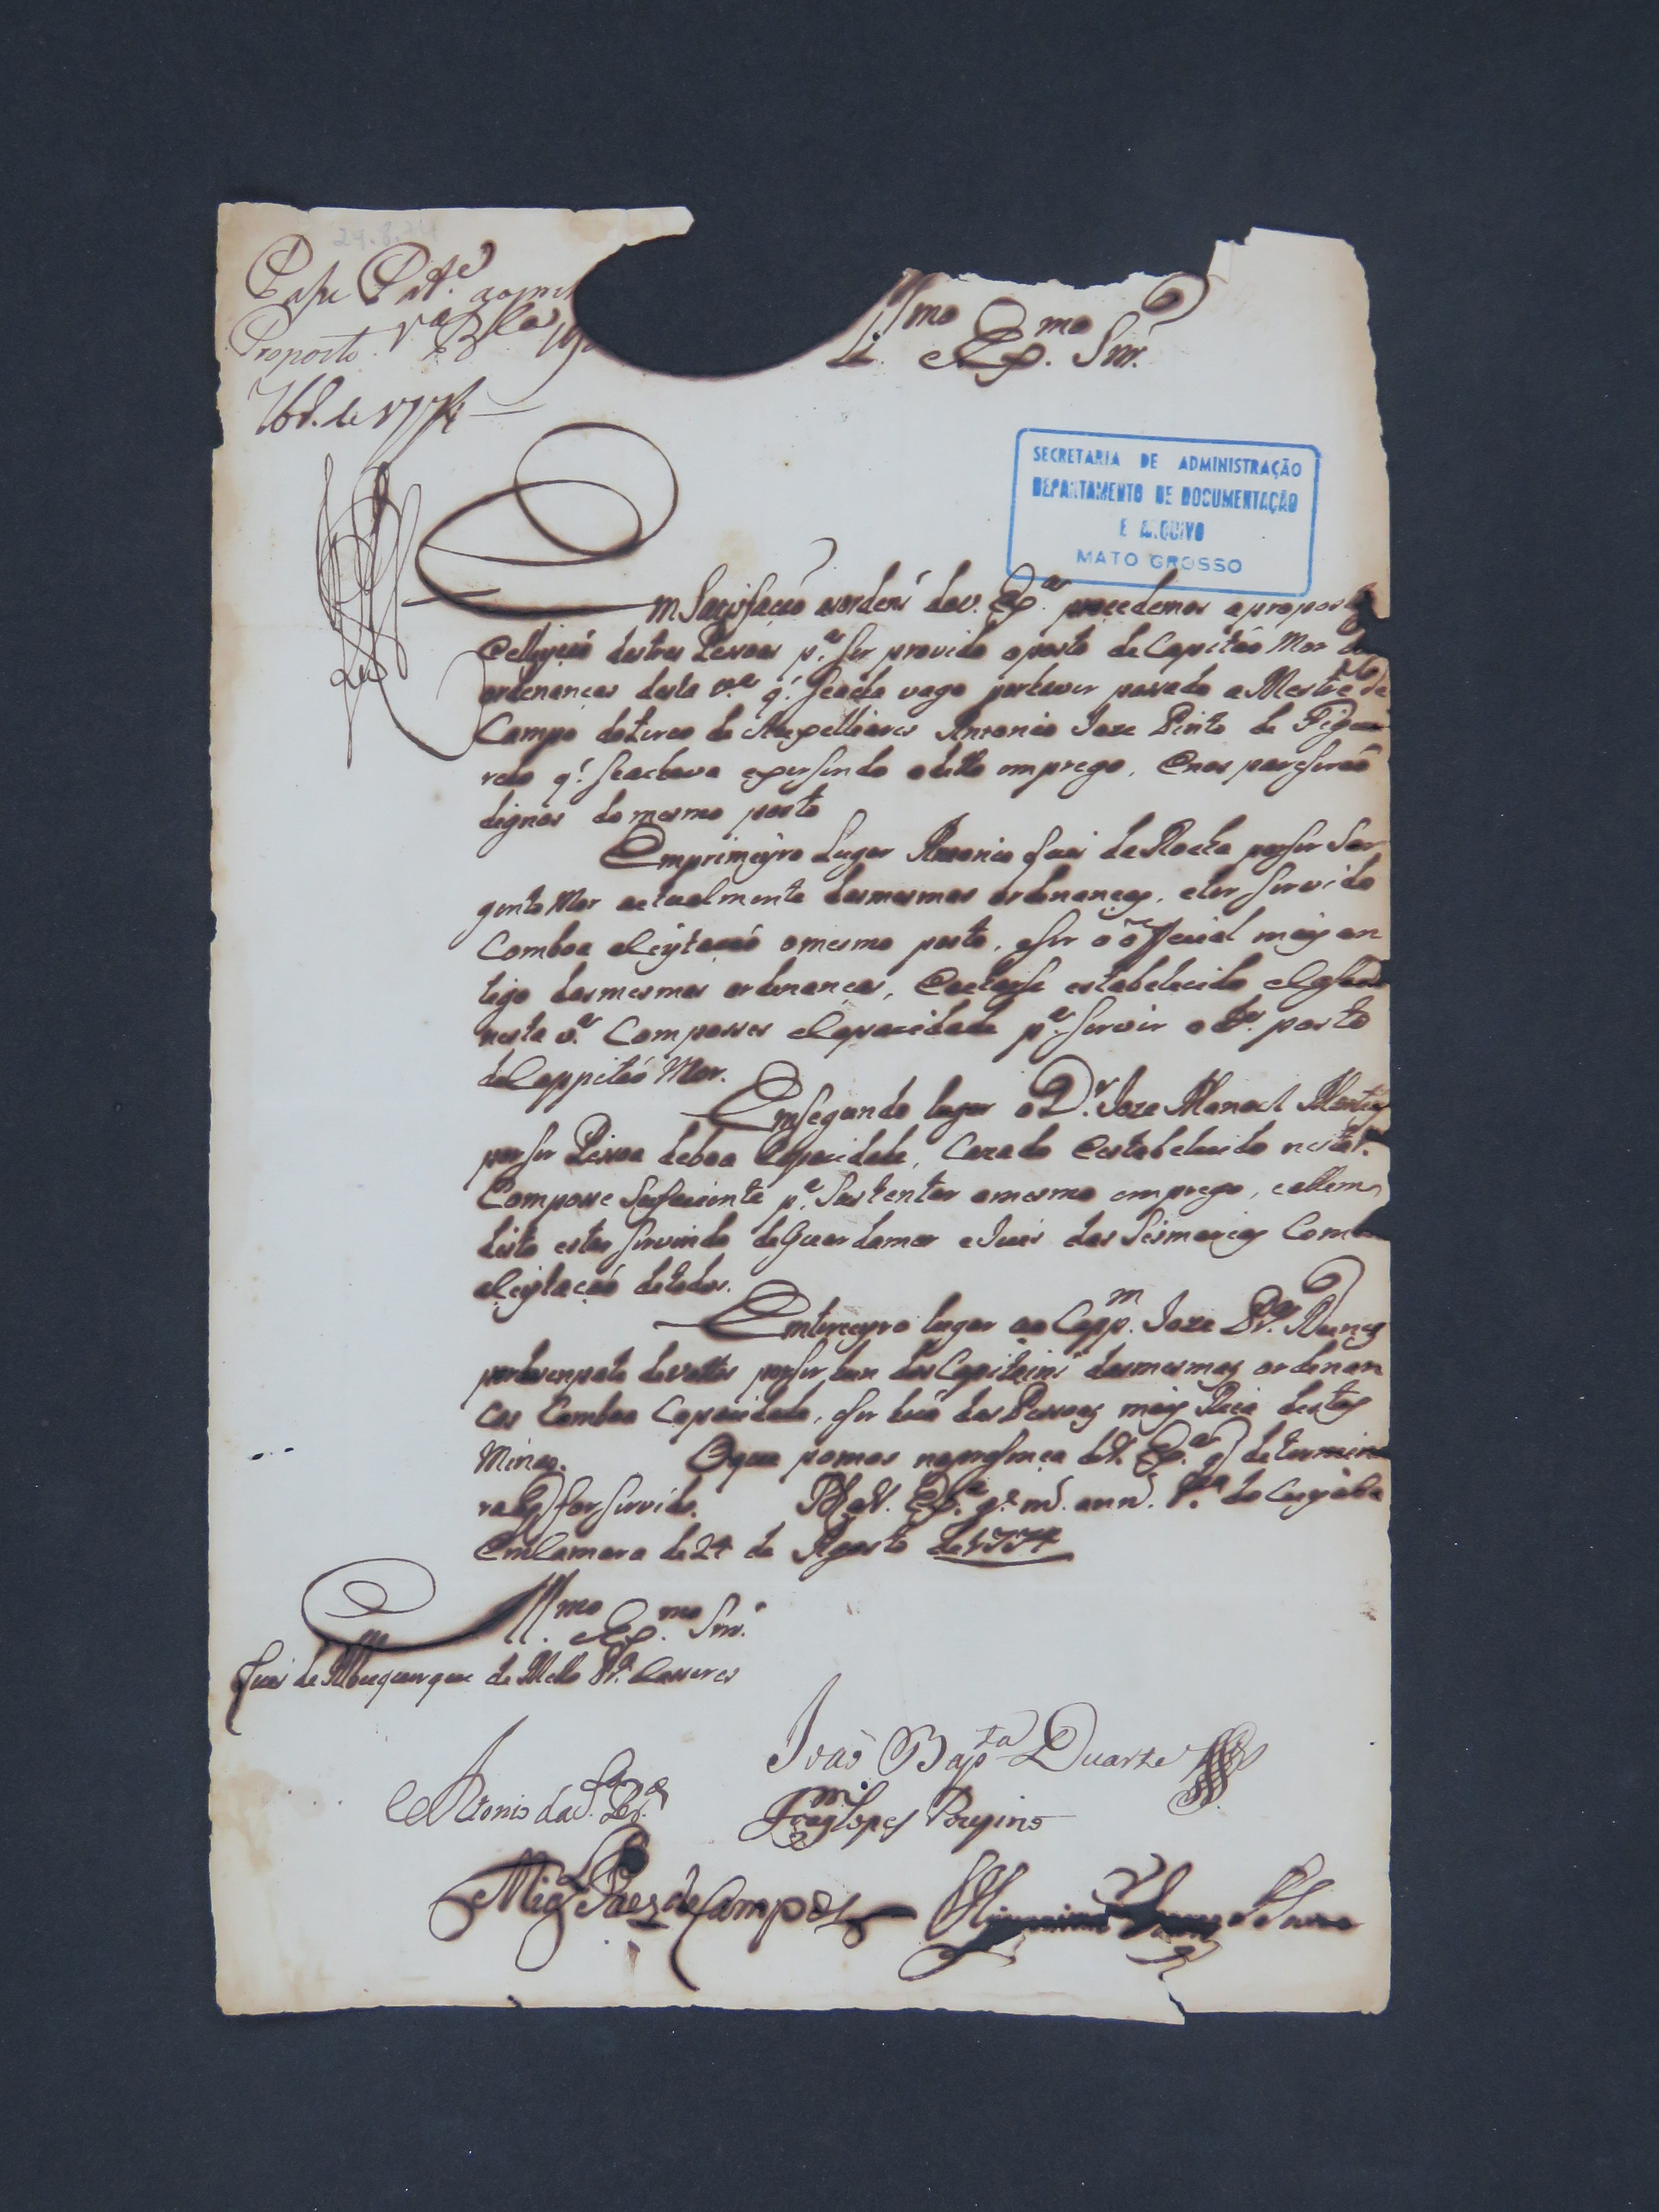 24.8.74
Passe Pat.e ao prim
Proposto. V.a Bela 19
7br.o de 1774
Ill.mo Ex.mo Snr.
SECRETARIA DE ADMINISTRAÇÃO
DEPARTAMENTO DE DOCUMENTAÇÃO
E ARQUIVO
MATO GROSSO
Em Satisfacaõ asordens de V. Ex.a procedemos apropos
Celleyçaõ destres Pessoas p.a ser provido oposto de Capitaõ Mor das
ordenancas desta v.a q.' seacha vago porhaver passado a Mestre de
Campo doterco de Auxelliares Antonio Joze Pinto de Figuei
redo q.' seachava exersendo oditto imprego. Enos paresseraõ
dignos do mesmo posto
Emprimeyro Lugar Antonio Luis da Rocha porser Sar
gentoMor actualmente dasmesmas ordenancas, eter servido
Comboa aseytacaõ omesmo posto, eser o official mais an
tigo dasmesmas ordenancas, Eacharse estabelecido eCasado
nesta v.a Composses eCapacidade p.a servir o d.o posto
deCappitaõ Mor.
Emsegundo lugar o D.r Joze Manoel Martins
porser Pessoa deboa Capacidade, Cazado Eestabelecido nesta v.a
Composse Sufeciente p.a Sustentar omesmo emprego, eallem
disto estar servindo deGuardamor eJuis das Sismarias Comboa
aseytacaõ detodos.
Enterceyro lugar ao Capp.m Joze Pr.a Nunes
pordesenpate devottos porser hum dos Capitains dasmesmas ordenan
cas Comboa Capacidade, eser huã das Pessoas mais Rica destas
Minas. Oque pomos napresença de V. Ex.a q' determina
ra oq' forservido. D.s a V. Ex.a g.e m.s ann.s V.a do Cuyaba
EmCamara de 24 de Agosto de 1774
Ill.mo Ex.mo Snr.
Luis de Albuquerque de Mello Pr.a Casseres
Joaõ Bap.ta Duarte
Antonio da S.a
Lopes
Mig.l Paes de Campos